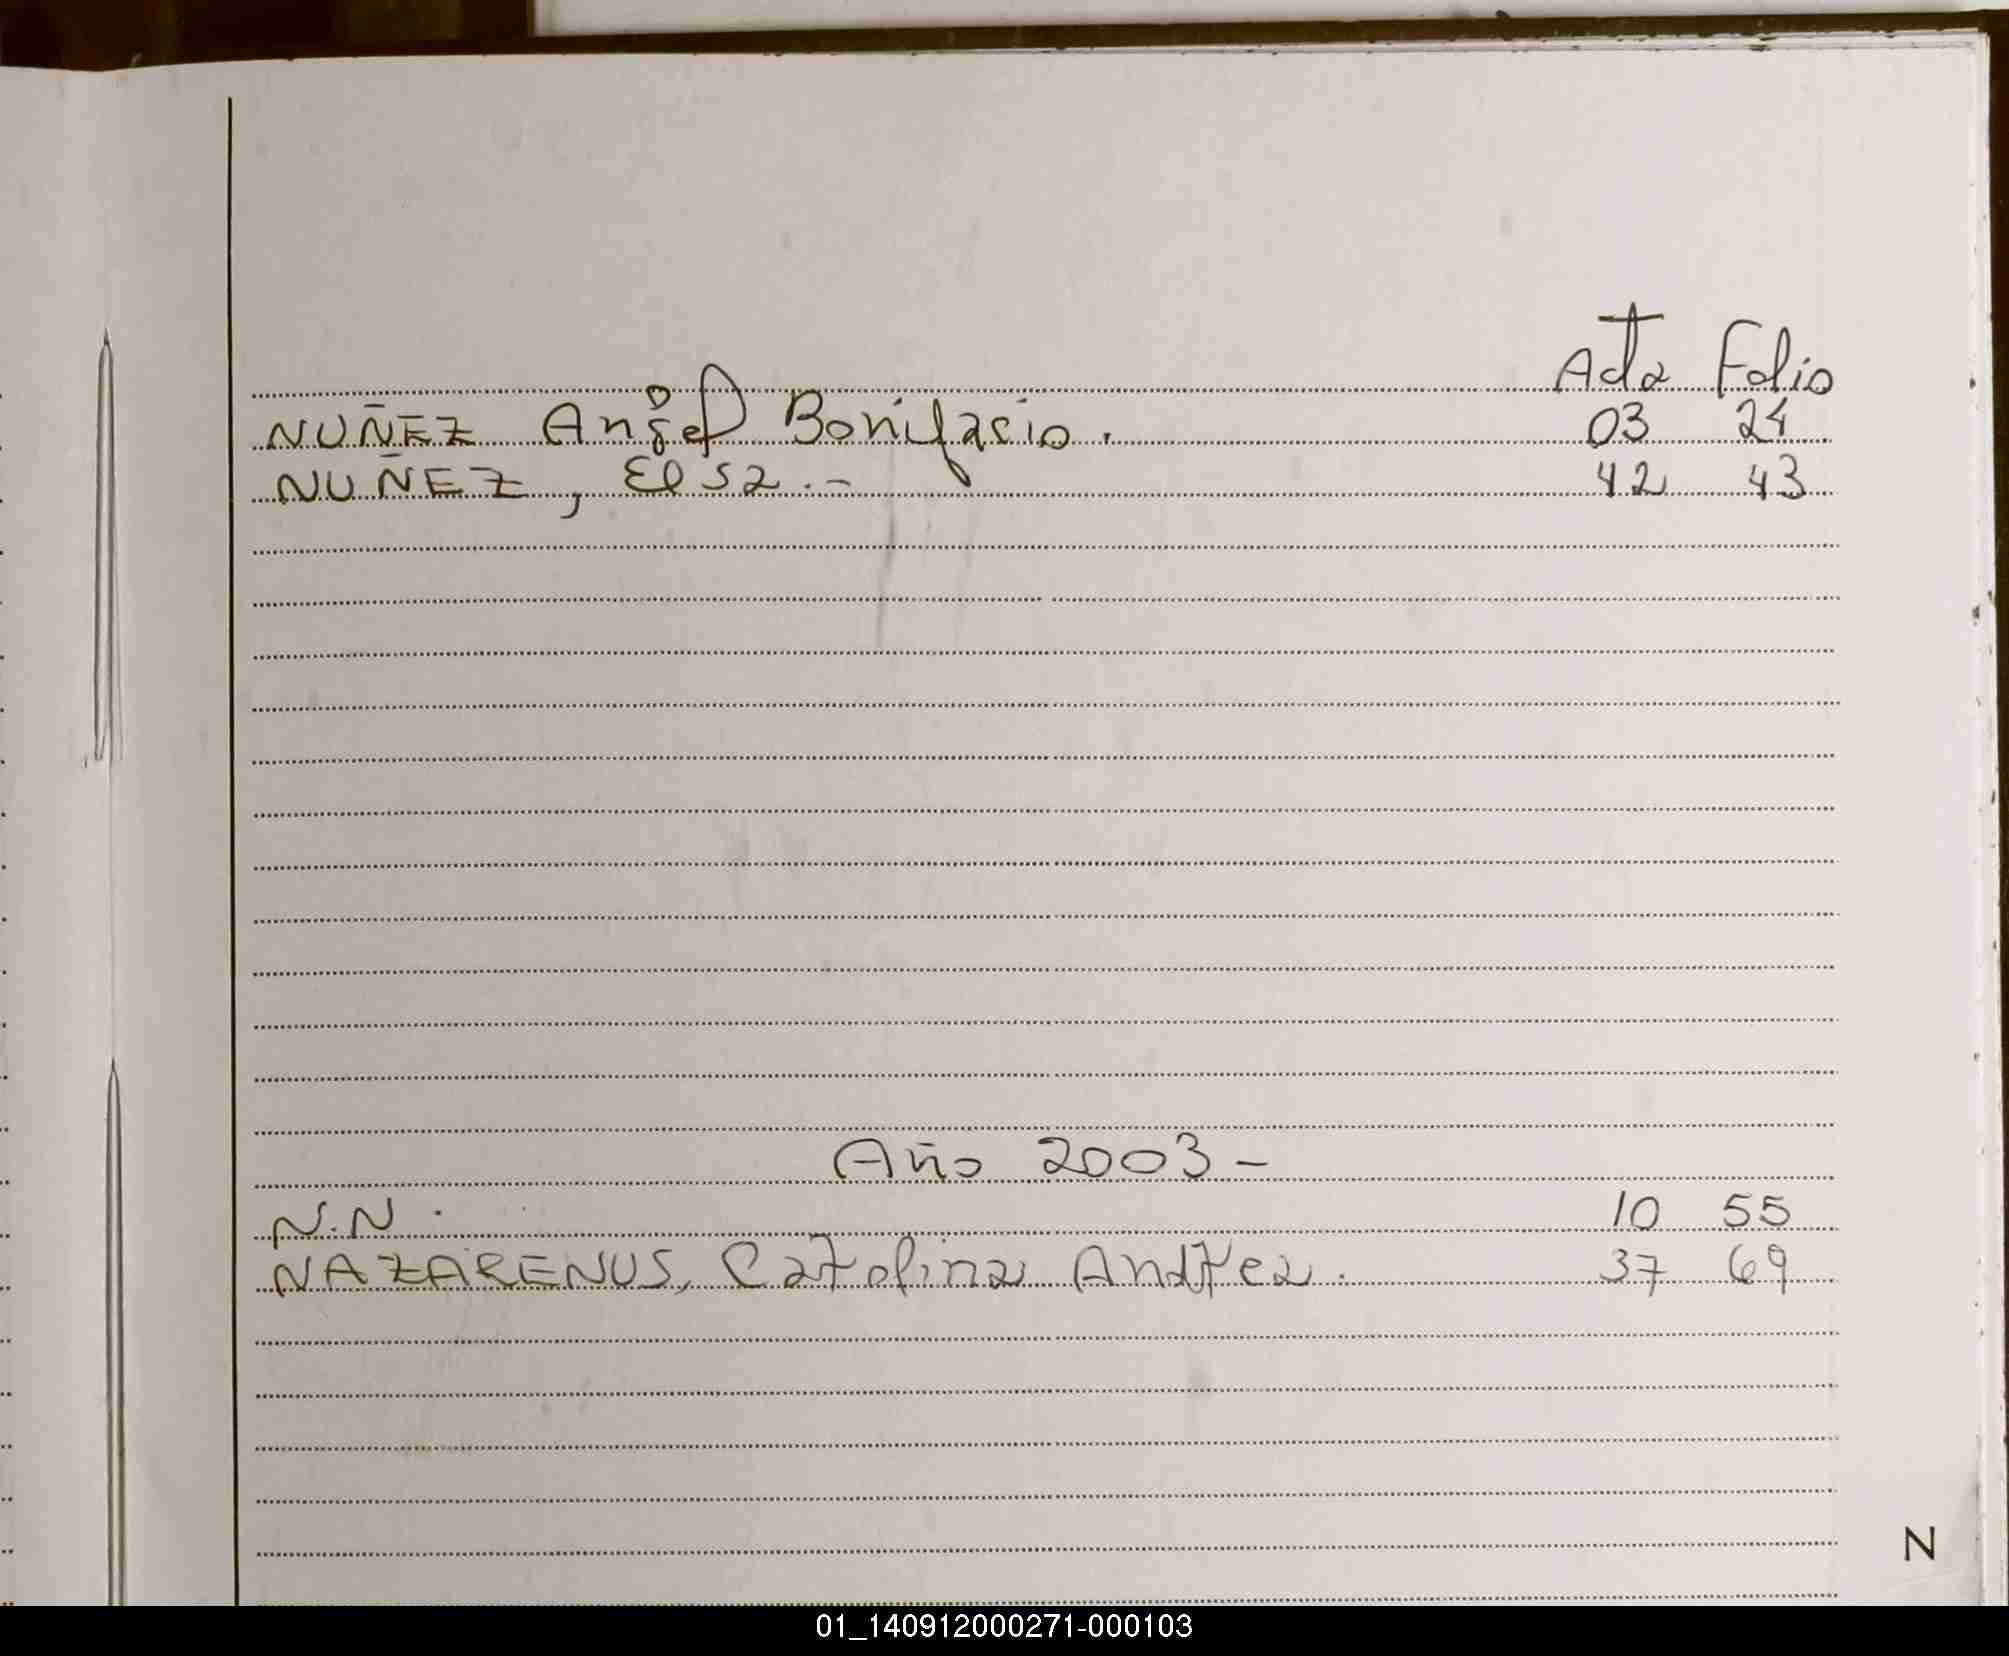 Acta Folio
NUÑEZ Angel Bonifacio. 03 24
NUÑEZ, Elsa.- 42 43
Año 2003-
N.N. 10 55
NAZARENUS, Carolina Andrea. 37 69
N
01_140912000271-000103